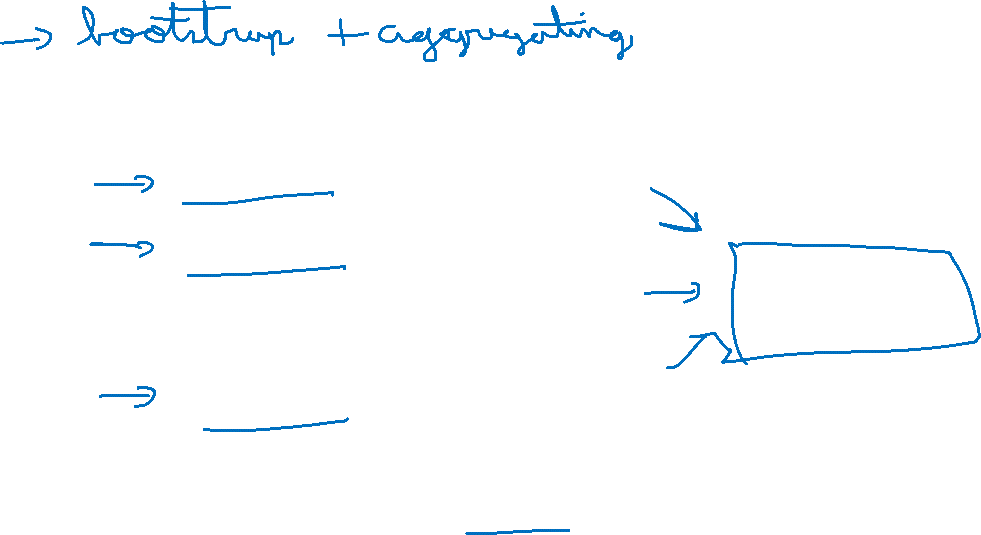 → bootstrap + aggregating